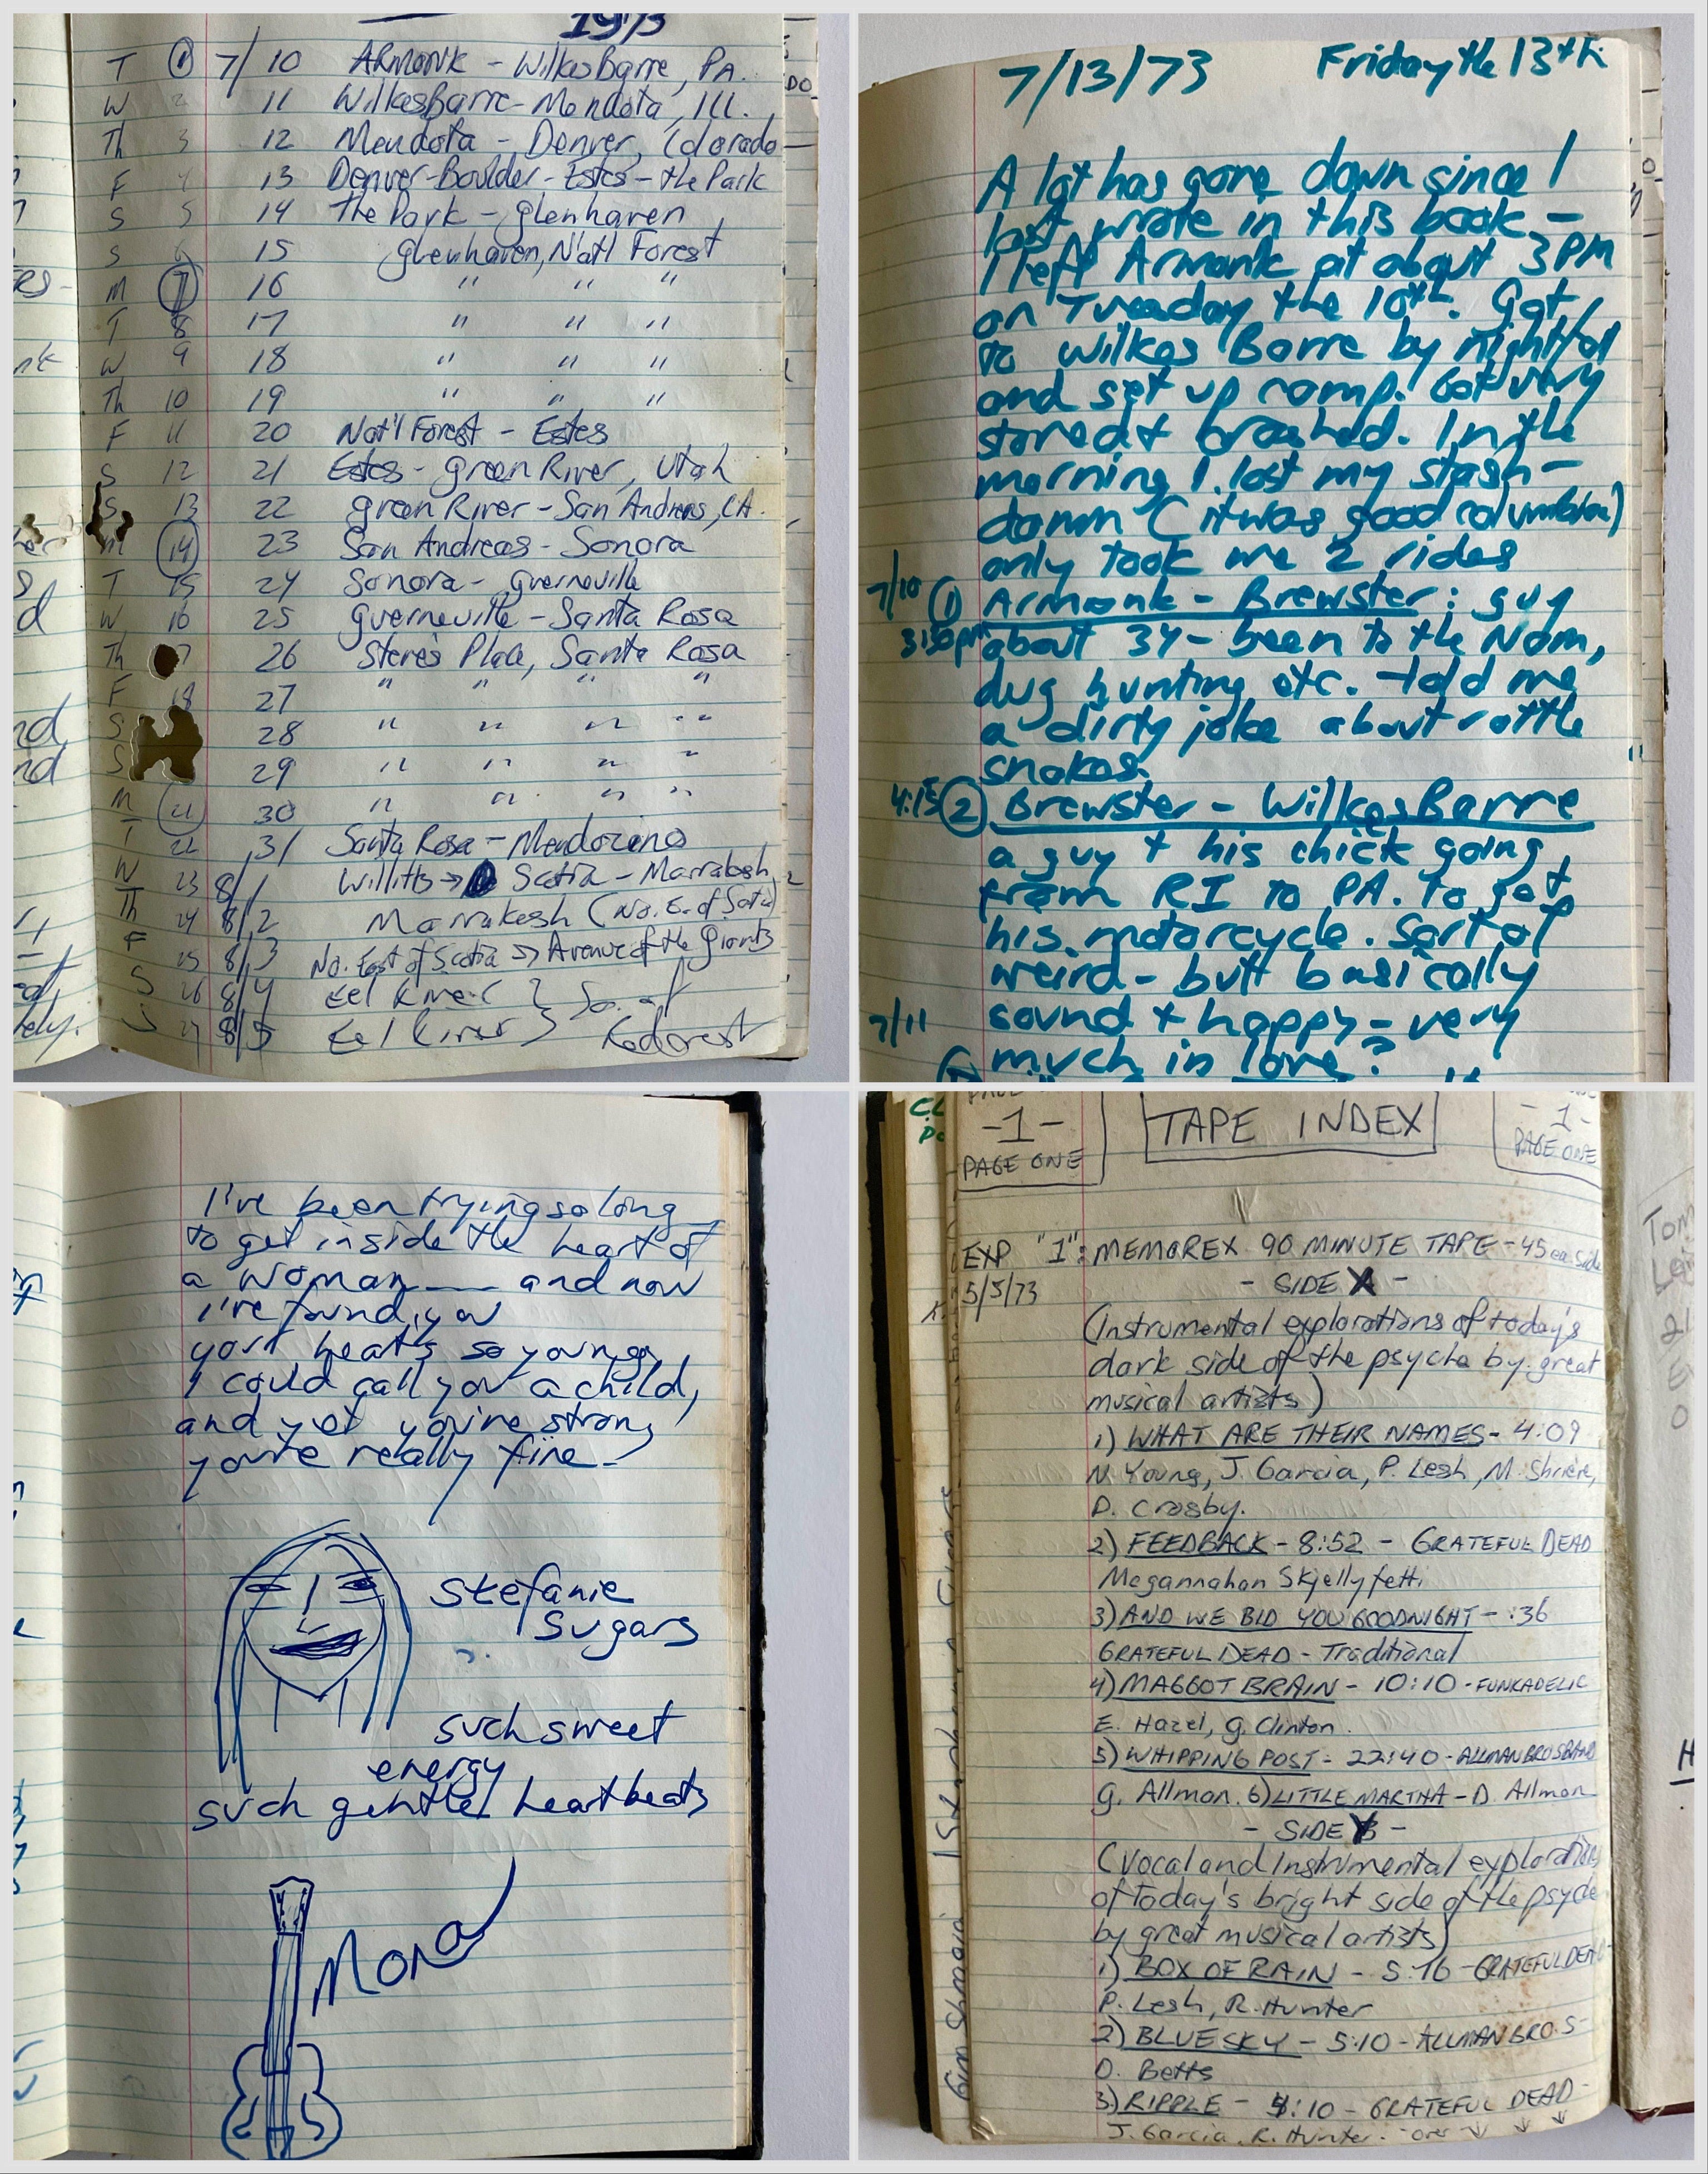 1973
T 1 7/10 ARMONK - Wilkes Barre, PA.
W 2 11 WilkesBarre - Mendota, Ill.
Th 3 12 Mendota - Denver, Colorado
F 4 13 Denver-Boulder - Estes - the Park
S 5 14 the Park - glenhaven
S 6 15 glenhaven, Nat'l Forest
M 7 16 " " "
T 8 17 " " "
W 9 18 " " "
Th 10 19 " " "
F 11 20 Nat'l Forest - Estes
S 12 21 Estes - green River, Utah
S 13 22 green River - San Andreas, CA.
M 14 23 San Andreas - Sonora
T 15 24 Sonora - guerneville
W 16 25 guerneville - Santa Rosa
Th 7 26 Steve's Place, Santa Rosa
F 18 27 " " " "
S 28 " " " "
S 29 " " " "
M 21 30 " " " "
T 22 31 Santa Rosa - Mendocino
W 23 8/1 Willitts → Scotia - Marrakesh
Th 24 8/2 Marrakesh (No. E. of Scotia)
F 25 8/3 No. East of Scotia → Avenue of the Giants
S 26 8/4 Eel River } So. of
S 27 8/5 Eel River } Redcrest
7/13/73 Friday the 13th
A lot has gone down since I
last wrote in this book -
I left Armonk at about 3 PM
on Tuesday the 10th. Got
to Wilkes Barre by nightfal
and set up camp. Got very
stoned + crashed. In the
morning I lost my stash -
damn (it was good columbian)
only took me 2 rides
7/10 (1) Armonk - Brewster: guy
3:30pm about 34 - been to the Nam,
dug hunting etc. told me
a dirty joke about rattle
snakes.
4:15 (2) Brewster - Wilkes Barre
a guy + his chick going
from RI to PA. to get
his motorcycle. Sort of
weird - butt basically
sound + happy - very
7/11 much in love?
I've been trying so long
to get inside the heart of
a woman —— and now
I've found you
your heart's so young,
I could call you a child,
and yet you're strong
you're really fine -
Stefanie
Sugars
such sweet
energy
such gentle heartbeats
Mona
-1-
PAGE ONE
TAPE INDEX
-1-
PAGE ONE
EXP "1": MEMOREX 90 MINUTE TAPE - 45 ea side
5/5/73 - SIDE A -
(Instrumental explorations of today's
dark side of the psyche by great
musical artists)
1) WHAT ARE THEIR NAMES - 4:09
N. Young, J. Garcia, P. Lesh, M. Shrieve,
D. Crosby.
2) FEEDBACK - 8:52 - GRATEFUL DEAD
Megannahan Skjellyfetti
3) AND WE BID YOU GOODNIGHT - :36
GRATEFUL DEAD - Traditional
4) MAGGOT BRAIN - 10:10 - FUNKADELIC
E. Hazel, g. Clinton.
5) WHIPPING POST - 22:40 - ALLMAN BROS BAND
g. Allman. 6) LITTLE MARTHA - D. Allman
- SIDE B -
(Vocal and Instrumental explorations
of today's bright side of the psyche
by great musical artists)
1) BOX OF RAIN - 5:16 - GRATEFUL DEAD
P. Lesh, R. Hunter
2) BLUE SKY - 5:10 - ALLMAN BROS -
D. Betts
3) RIPPLE - 4:10 - GRATEFUL DEAD -
J. Garcia, R. Hunter. over ↓ ↓ ↓